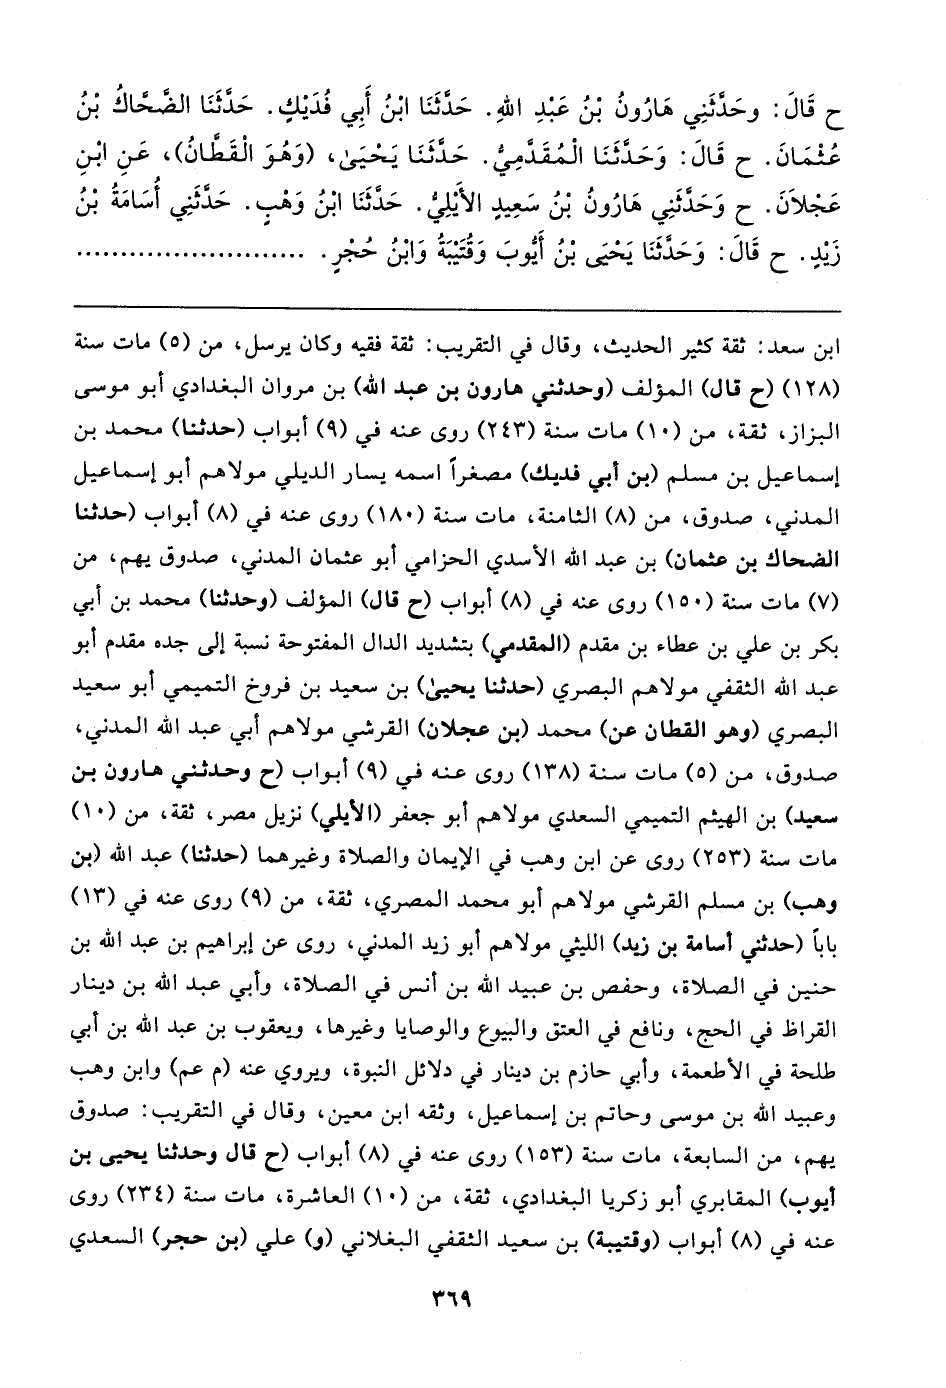 ح قَالَ: وحَدَّثَنِي هَارُونُ بْنُ عَبْدِ اللهِ. حَدَّثَنَا ابْنُ أَبِي فُدَيْكٍ. حَدَّثَنَا الضَّحَّاكُ بْنُ
عُثْمَانَ. ح قَالَ: وَحَدَّثَنَا الْمُقَدَّمِيُّ. حَدَّثَنَا يَحْيَىٰ، (وَهُوَ الْقَطَّانُ)، عَنِ ابْنِ
عَجْلَانَ. ح وَحَدَّثَنِي هَارُونُ بْنُ سَعِيدٍ الأَيْلِيُّ. حَدَّثَنَا ابْنُ وَهْبٍ. حَدَّثَنِي أُسَامَةُ بْنُ
زَيْدٍ. ح قَالَ: وَحَدَّثَنَا يَحْيَى بْنُ أَيُّوبَ وَقُتَيْبَةُ وَابْنُ حُجْرٍ. ..........................
ابن سعد: ثقة كثير الحديث، وقال في التقريب: ثقة فقيه وكان يرسل، من (٥) مات سنة
(١٢٨) (ح قال) المؤلف (وحدثني هارون بن عبد الله) بن مروان البغدادي أبو موسى
البزاز، ثقة، من (١٠) مات سنة (٢٤٣) روى عنه في (٩) أبواب (حدثنا) محمد بن
إسماعيل بن مسلم (بن أبي فديك) مصغراً اسمه يسار الديلي مولاهم أبو إسماعيل
المدني، صدوق، من (٨) الثامنة، مات سنة (١٨٠) روى عنه في (٨) أبواب (حدثنا
الضحاك بن عثمان) بن عبد الله الأسدي الحزامي أبو عثمان المدني، صدوق يهم، من
(٧) مات سنة (١٥٠) روى عنه في (٨) أبواب (ح قال) المؤلف (وحدثنا) محمد بن أبي
بكر بن علي بن عطاء بن مقدم (المقدمي) بتشديد الدال المفتوحة نسبة إلى جده مقدم أبو
عبد الله الثقفي مولاهم البصري (حدثنا يحيىٰ) بن سعيد بن فروخ التميمي أبو سعيد
البصري (وهو القطان عن) محمد (بن عجلان) القرشي مولاهم أبي عبد الله المدني،
صدوق، من (٥) مات سنة (١٣٨) روى عنه في (٩) أبواب (ح وحدثني هارون بن
سعيد) بن الهيثم التميمي السعدي مولاهم أبو جعفر (الأيلي) نزيل مصر، ثقة، من (١٠)
مات سنة (٢٥٣) روى عن ابن وهب في الإيمان والصلاة وغيرهما (حدثنا) عبد الله (بن
وهب) بن مسلم القرشي مولاهم أبو محمد المصري، ثقة، من (٩) روى عنه في (١٣)
باباً (حدثني أسامة بن زيد) الليثي مولاهم أبو زيد المدني، روى عن إبراهيم بن عبد الله بن
حنين في الصلاة، وحفص بن عبيد الله بن أنس في الصلاة، وأبي عبد الله بن دينار
القراظ في الحج، ونافع في العتق والبيوع والوصايا وغيرها، ويعقوب بن عبد الله بن أبي
طلحة في الأطعمة، وأبي حازم بن دينار في دلائل النبوة، ويروي عنه (م عم) وابن وهب
وعبيد الله بن موسى وحاتم بن إسماعيل، وثقه ابن معين، وقال في التقريب: صدوق
يهم، من السابعة، مات سنة (١٥٣) روى عنه في (٨) أبواب (ح قال وحدثنا يحيى بن
أيوب) المقابري أبو زكريا البغدادي، ثقة، من (١٠) العاشرة، مات سنة (٢٣٤) روى
عنه في (٨) أبواب (وقتيبة) بن سعيد الثقفي البغلاني (و) علي (بن حجر) السعدي
٣٦٩